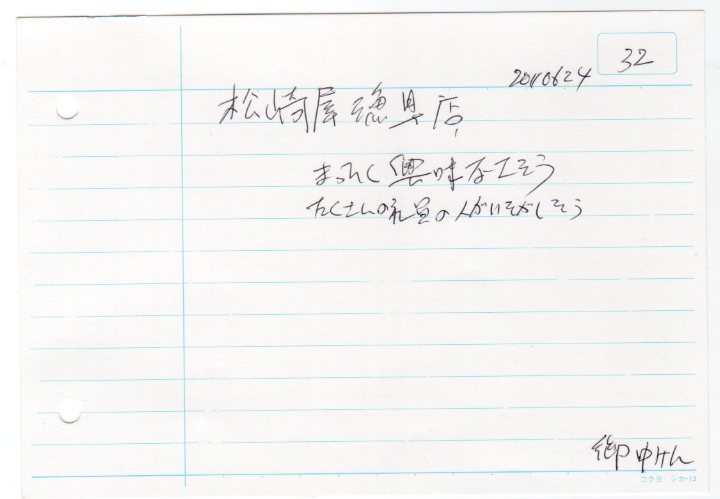 32
20110624
松崎屋漁具店
まったく興味なさそう
たくさんの社員の人がいそがしそう
御中けん
コクヨ シカ-13